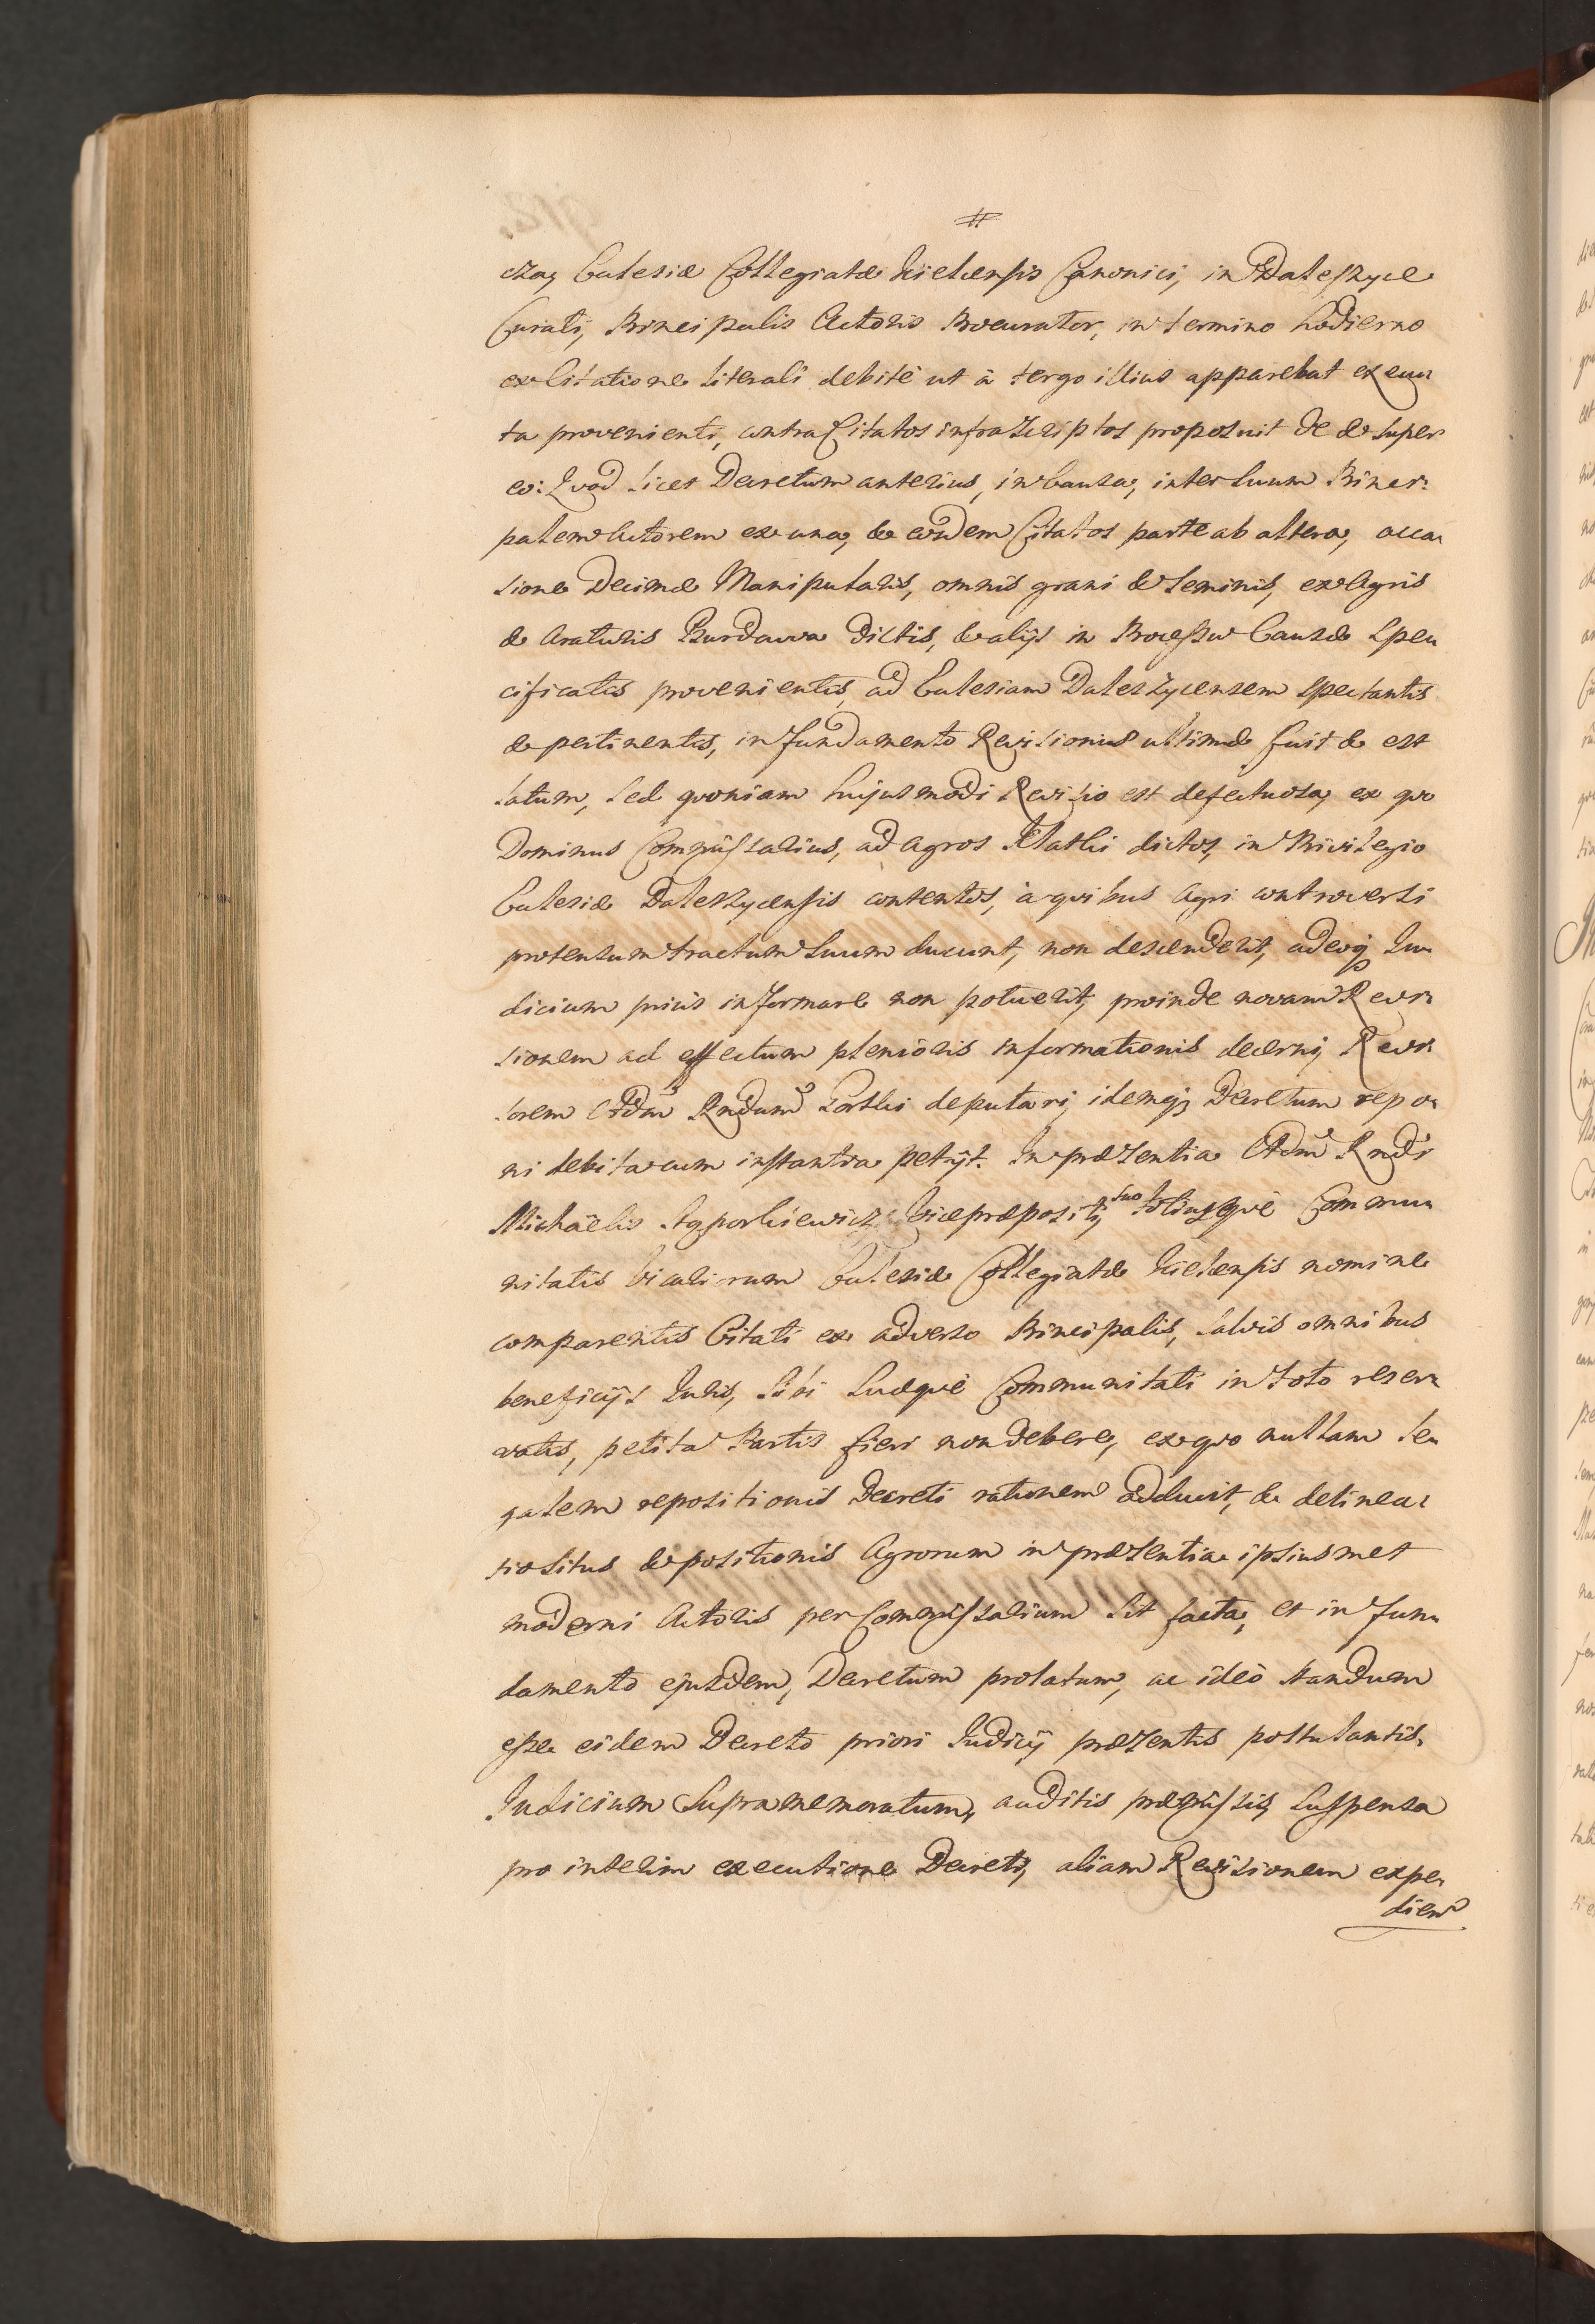 #
cza, Ecclesiæ Collegiatæ Kielcensis Canonici, in Daleszyce
Curati, Principalis Actoris Procurator, in termino hodierno
ex Citatione literali debitè ut à tergo illius apparebat execu„
ta provenienti, contra Citatos infrascriptos proposuit de & super
eo: Quod licet Decretum anterius, in Causa, inter Suum Princi„
palem Actorem ex una, & eosdem Citatos parte ab altera, occa„
sione Decimæ Manipularis, omnis grani & seminis, ex Agris
& Araturis Burdawa dictis, & alijs in Processu Causæ spe„
cificatis provenientis, ad Ecclesiam Daleszycensem spectantis
& pertinentis, in fundamento Revisionis ultimæ fuit & est
latum, sed quoniam hujusmodi Revisio est defectuosa, ex quo
Dominus Commissarius, ad Agros Klatki dictos, in Privilegio
Ecclesiæ Daleszycensis contentos, à quibus Agri controversi
protensum tractum suum ducunt, non descenderit, adeoq Iu„
dicium priùs informare non potuerit, proinde novam Revi„
sionem ad effectum plenioris informationis decerni, Revi„
sorem Adm Rndum Portki deputari, idemq Decretum repo„
ni debita cum instantia petijt. In præsentia Adm Rndi
Michaëlis Vicepræpositi, suo totiusque Commu„
nitatis Vicariorum Ecclesiæ Collegiatæ Kielcensis nomine
comparentis Citati ex adverso Principalis, salvis omnibus
beneficijs Iuris, sibi suæque Communitati in toto reser„
vatis, petita Partis fieri non debere, ex quo nullam le„
galem repositionis Decreti rationem adducit, & delinea„
tio situs & positionis Agrorum in præsentia ipsiusmet
moderni Actoris per Commissarium sit facta, et in fun„
damento ejusdem, Decretum prolatum, ac ideò standum
esse eidem Decreto priori Iudicij præsentis postulantis.
Iudicium supramemoratum, auditis præmissis, suspensa
pro interim executione Decreti, aliam Revisionem expe„
dien